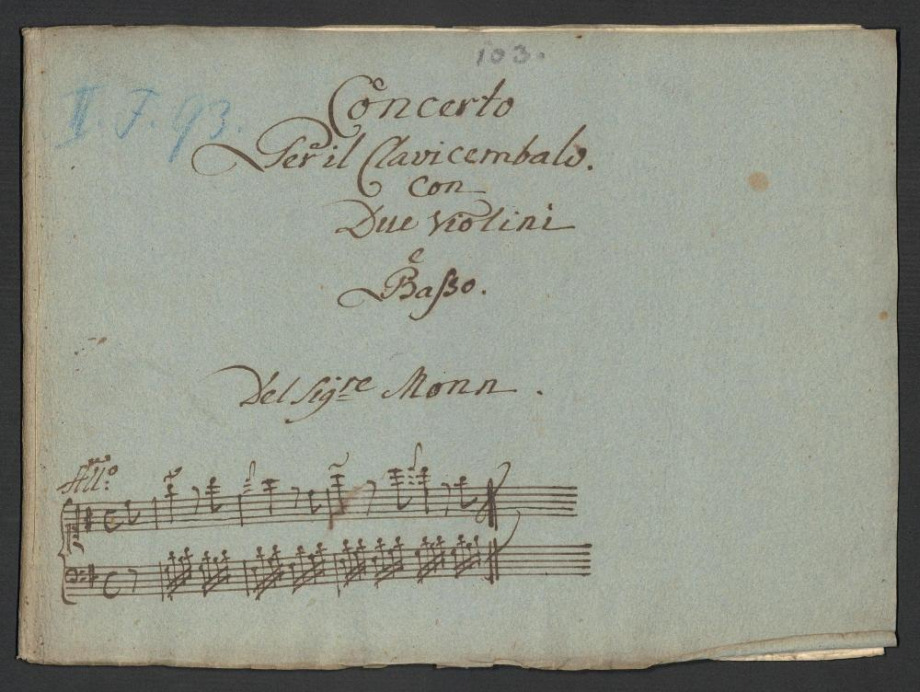 103.
II. F. 93.
Concerto
Per il Clavicembalo.
con
Due Violini
e
Baßo.
Del Sigre Monn.
All:o